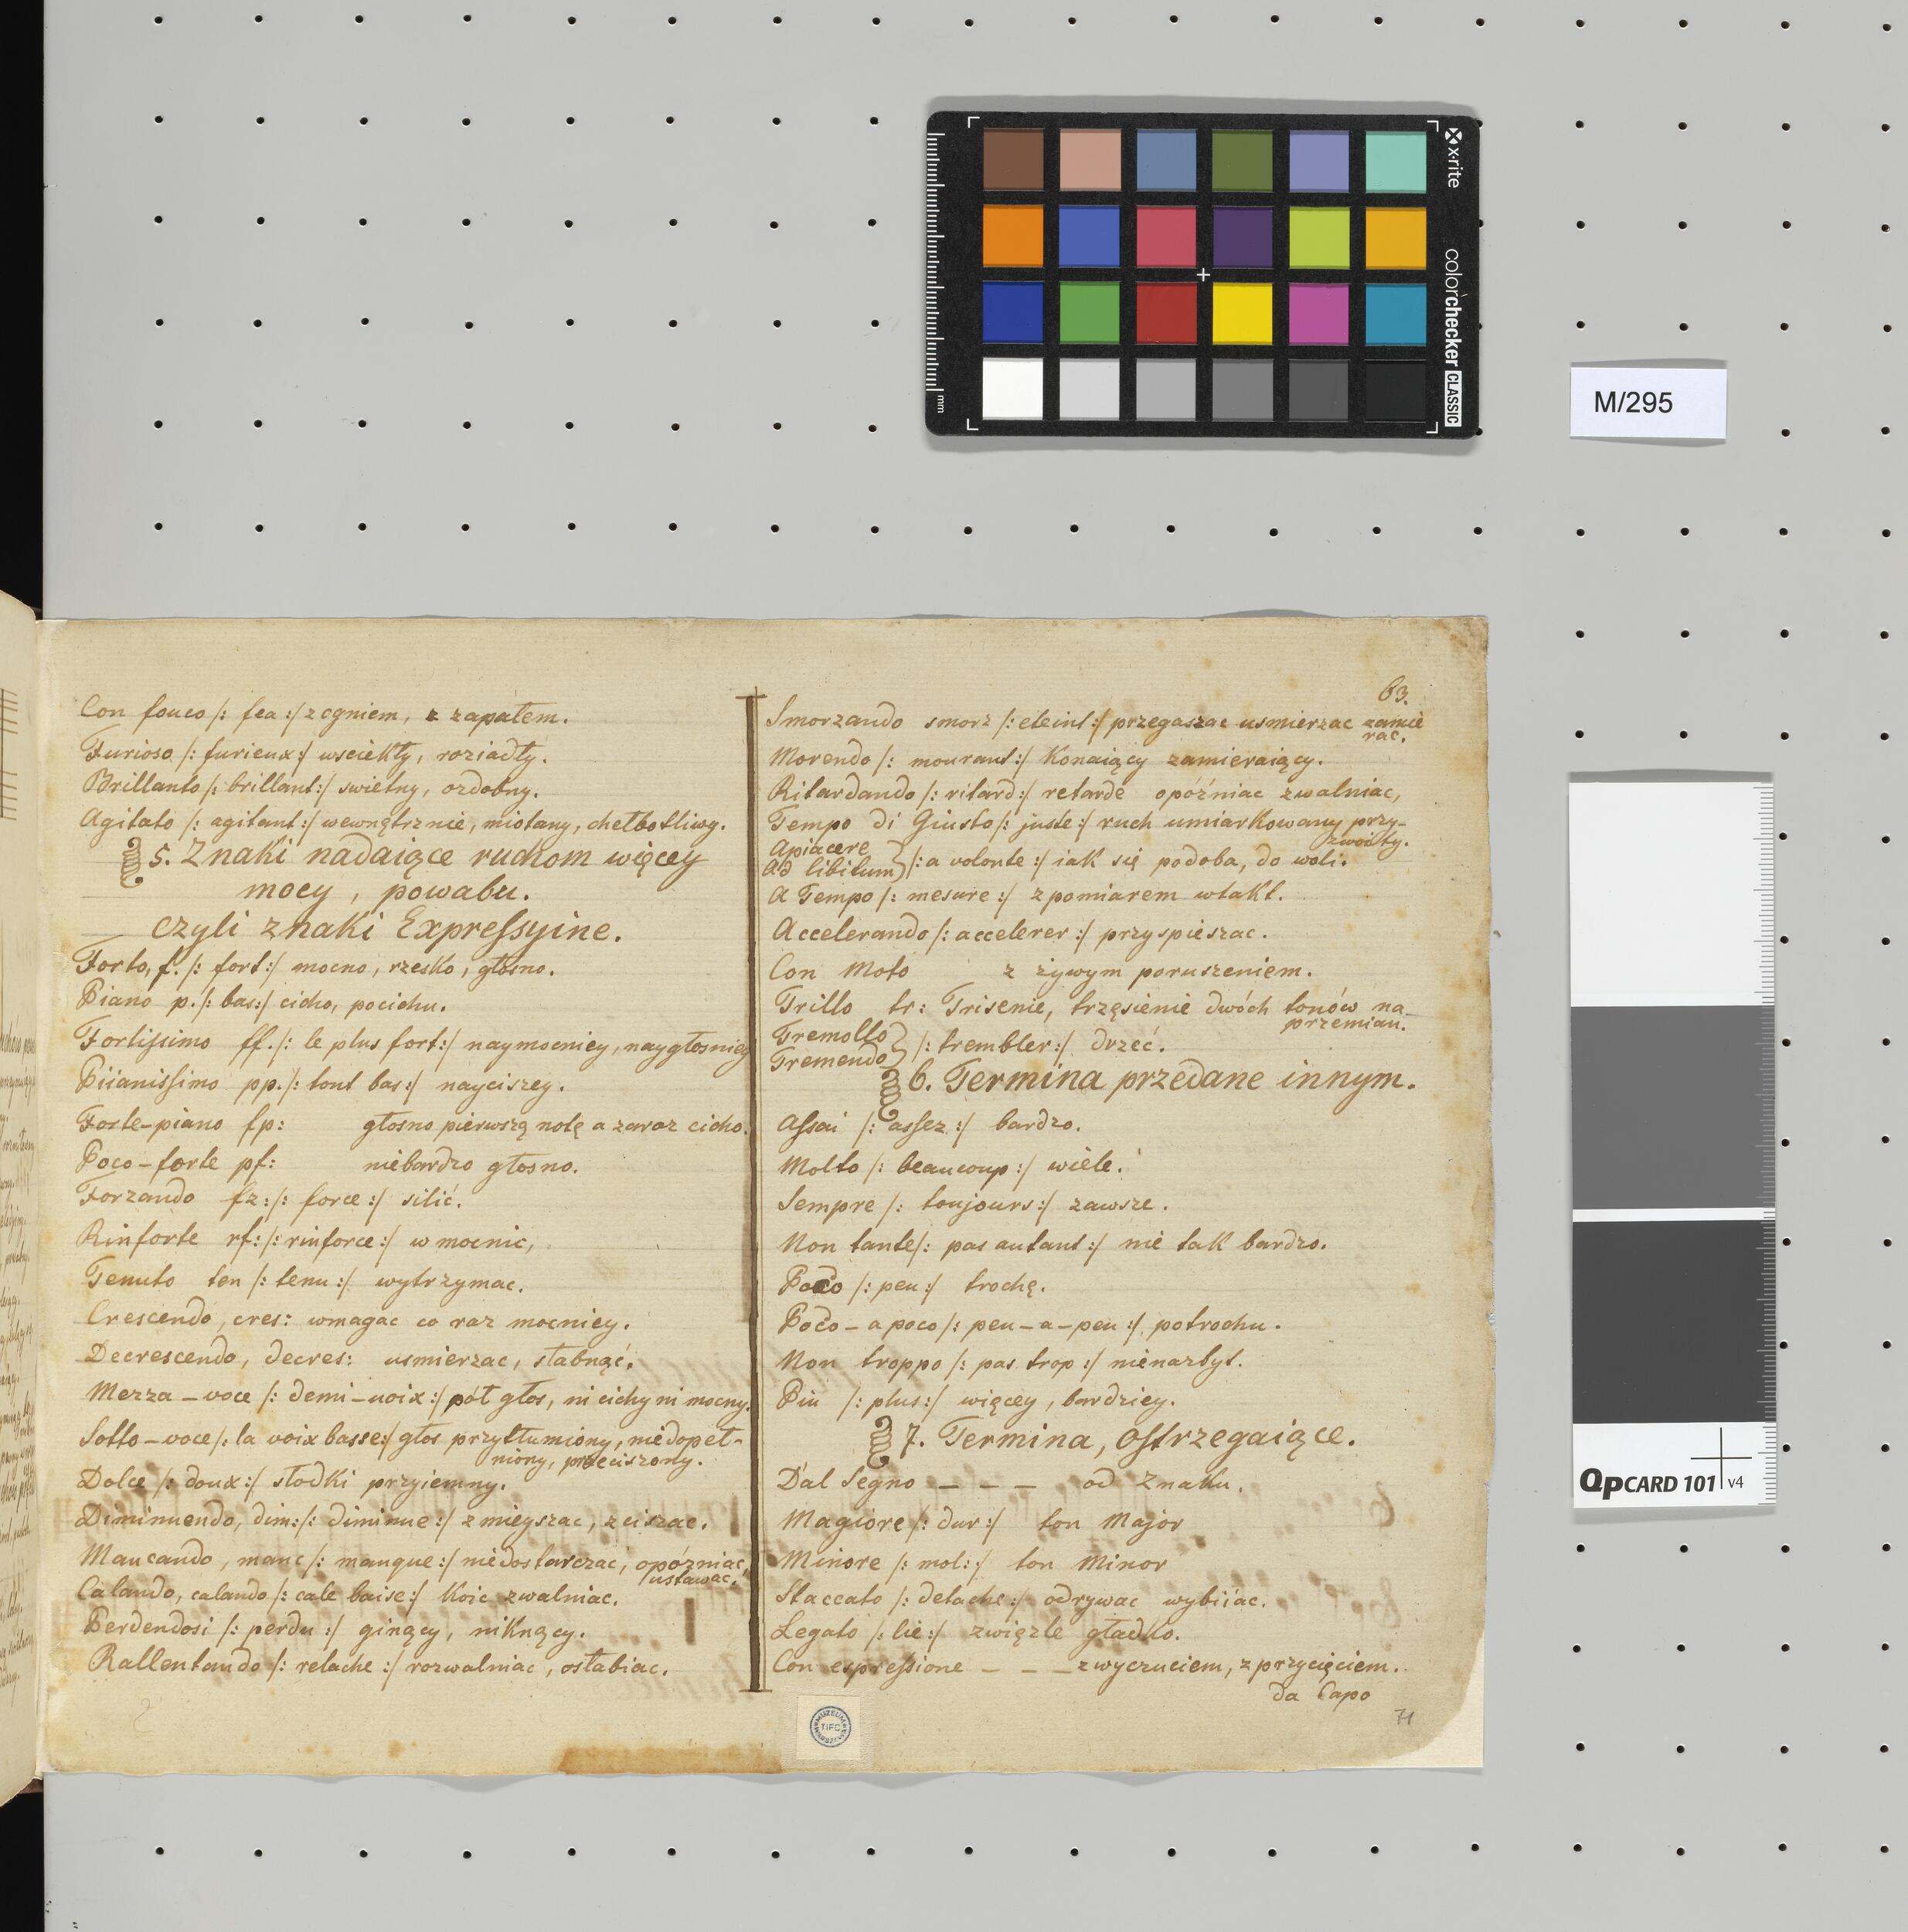 x-rite
colorchecker CLASSIC
mm
M/295
63.
Con fouco /: feu :/ z ogniem, z zapałem.
Furioso /: furieux :/ wsciekły, roziadły.
Brillanto /: brillant :/ swietny, ozdobny.
Agitato /: agitant :/ wewnętrznie, miotany, chełbotliwy.
§ 5. Znaki nadaiące ruchom więcey
mocy, powabu.
czyli znaki Expreſsyine.
Forto, f. /: fort :/ mocno, rzesko, głosno.
Piano p. /: bas :/ cicho, pocichu.
Fortiſsimo ff. /: le plus fort :/ naymocniey, naygłosniey
Piianisſimo pp. /: tout bas :/ nayciszey.
Forte-piano fp: głosno pierwszą notę a zaraz cicho.
Poco-forte pf: niebardzo głosno.
Forzando fz: /: force :/ silić.
Rinforte rf: /: rinforce :/ wmocnic,
Tenuto ten /: tenu :/ wytrzymac.
Crescendo, cres: wmagac co raz mocniey.
Decrescendo, decres: usmierzac, słabnąć.
Mezza-voce /: demi-voix :/ pół głos, ni cichy ni mocny.
Sotto-voce /: la voix basse :/ głos przytłumiony, niedopeł-
niony, przeciszony.
Dolce /: doux :/ słodki przyiemny.
Diminuendo, dim: /: diminue :/ zmieyszac, zciszac.
Mancando, manc /: manque :/ niedostarczać, opózniac,
ustawac.
Calando, calando /: cale baise :/ koić zwalniac.
Perdendosi /: perdu :/ ginący, niknący.
Rallentando /: relache :/ rozwalniac, osłabiac.
Smorzando smorz /: eteint :/ przegaszac usmierzac zamie
rac.
Morendo /: mourant :/ Konaiący zamieraiący.
Ritardando /: ritard :/ retarde opóźniac zwalniac,
Tempo di Giusto /: juste :/ ruch umiarkowany przy-
zwoity.
Apiacere
Ad libitum } /: a volonte :/ iak się podoba, do woli.
A Tempo /: mesure :/ z pomiarem wtakt.
Accelerando /: accelerer :/ przyspieszac.
Con Moto z żywym poruszeniem.
Trillo tr: Trisenie, trzęsienie dwóch tonów na
przemian.
Tremollo
Tremendo } /: trembler :/ drzeć.
§ 6. Termina przedane innym.
Aſsai /: aſsez :/ bardzo.
Molto /: beaucoup :/ wiele.
Sempre /: toujours :/ zawsze.
Non tante /: pas autant :/ nie tak bardzo.
Poco /: peu :/ trochę.
Poco-a poco /: peu-a-peu :/ potrochu.
Non troppo /: pas trop :/ nienazbyt.
Piu /: plus :/ więcey, bardziey.
§ 7. Termina, Oſtrzegaiące.
Dal Segno – – – od Znaku.
Magiore /: dur :/ ton Major
Minore /: mol :/ ton Minor
Staccato /: detache :/ odrywac wybiiac.
Legato /: lié :/ zwięzle gładko.
Con espreſsione – – – z wyczuciem, z przycięciem.
Da Capo
71
MUZEUM TIFC WARSZAWA
QPCARD 101 v4